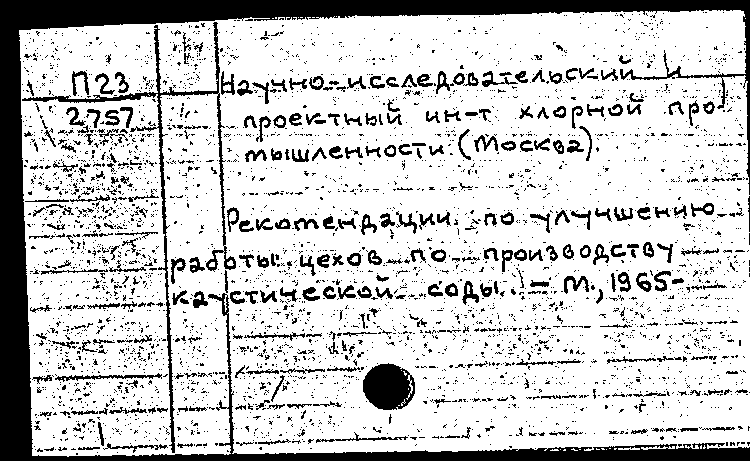 П23
2757
Научно-исследовательский и
проектный ин-т хлорной про-
мышленности (Москва).
Рекомендации по улучшению
работы цехов по производству
каустической соды. - М., 1965-